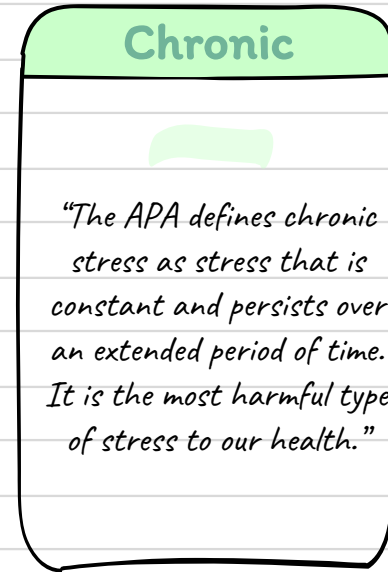 Chronic
“The APA defines chronic
stress as stress that is
constant and persists over
an extended period of time.
It is the most harmful type
of stress to our health.”